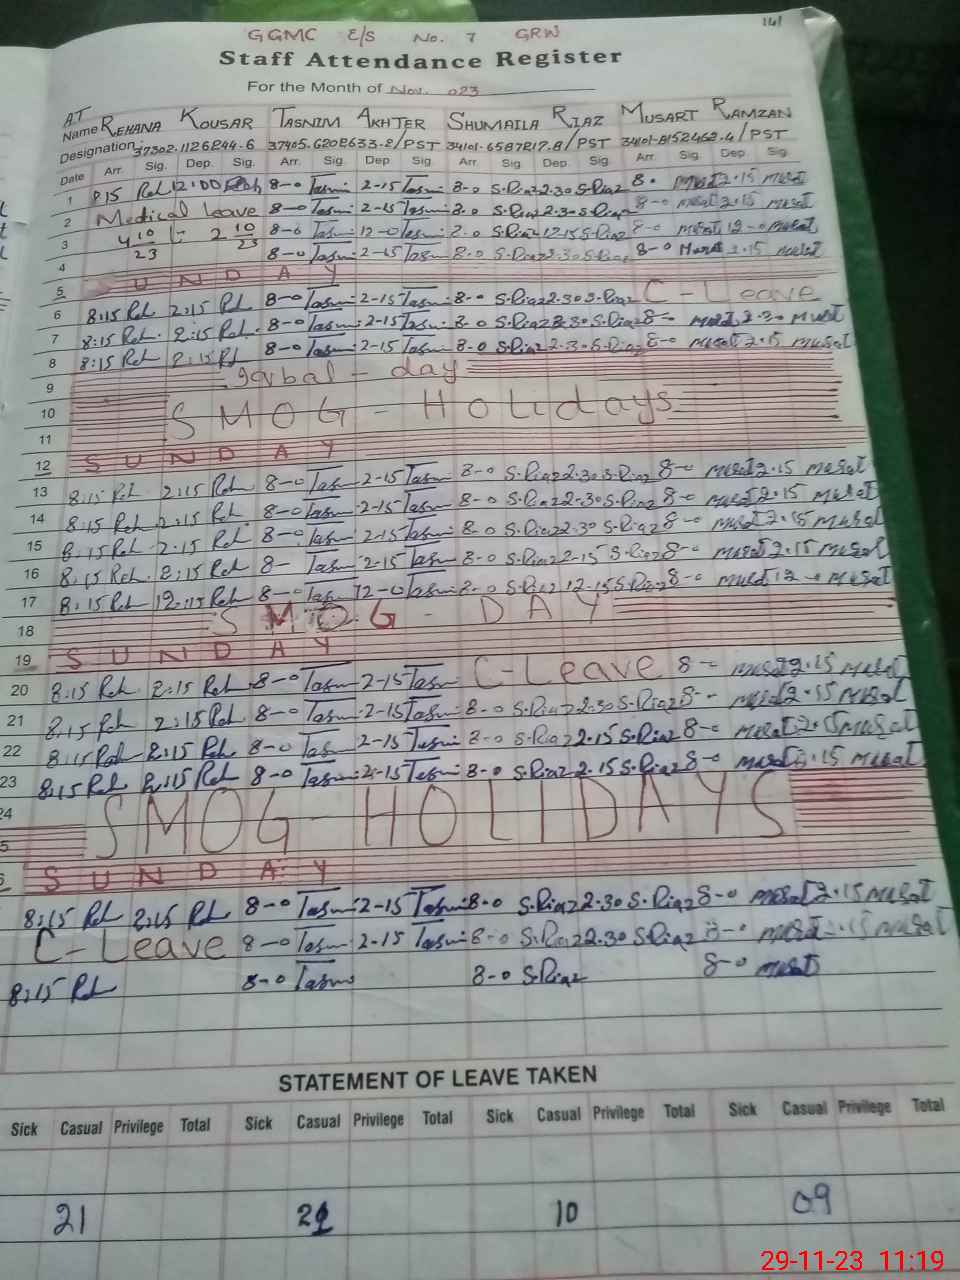 161
GGMC E/S No. 7 GRW
Staff Attendance Register
For the Month of Nov. 023
AT
Name REHANA KOUSAR TASNIM AKHTER SHUMAILA RIAZ MUSART RAMZAN
Designation 37302.1126244.6 /PST 34101.6587217.8/PST /PST
Date Arr. Sig. Dep. Sig. Arr. Sig. Dep. Sig. Arr. Sig. Dep. Sig. Arr. Sig. Dep. Sig.
1 815 Reh 12:00 Reh 8-0 Tasni 2-15 Tasni 8-0 S.Riaz 2.30 S.Riaz 8- Musrt 2.15 Musrt
2 Medical Leave 8-0 Tasni 2-15 Tasni 8-0 S.Riaz 2.30 S.Riaz 8-0 Musrt 2.15 Musrt
3 8-0 Tasni 12-0 Tasni 8-0 S.Riaz 12.15 S.Riaz 8-0 Musrt 12-0 Musrt
4 8-0 Tasni 2-15 Tasni 8-0 S.Riaz 2.30 S.Riaz 8-0 Musrt 2.15 Musrt
5 SUNDAY
6 8:15 Reh 2:15 Reh 8-0 Tasni 2-15 Tasni 8-0 S.Riaz 2.30 S.Riaz C-Leave
7 8:15 Reh 2:15 Reh 8-0 Tasni 2-15 Tasni 8-0 S.Riaz 2.30 S.Riaz 8-0 Musrt 2.30 Musrt
8 8:15 Reh 2:15 Reh 8-0 Tasni 2-15 Tasni 8-0 S.Riaz 2.30 S.Riaz 8-0 Musrt 2.15 Musrt
9 iqbal-day
10 SMOG-Holidays
11
12 SUNDAY
13 8:15 Reh 2:15 Reh 8-0 Tasni 2-15 Tasni 8-0 S.Riaz 2.30 S.Riaz 8-0 Musrt 2.15 Musrt
14 8:15 Reh 2:15 Reh 8-0 Tasni 2-15 Tasni 8-0 S.Riaz 2.30 S.Riaz 8-0 Musrt 2.15 Musrt
15 8:15 Reh 2:15 Reh 8-0 Tasni 2-15 Tasni 8-0 S.Riaz 2.30 S.Riaz 8-0 Musrt 2.15 Musrt
16 8:15 Reh 2:15 Reh 8- Tasni 2-15 Tasni 8-0 S.Riaz 2-15 S.Riaz 8-0 Musrt 2.15 Musrt
17 8:15 Reh 12:15 Reh 8-0 Tasni 12-0 Tasni 8-0 S.Riaz 12.15 S.Riaz 8-0 Musrt 12-0 Musrt
18 SMOG-DAY
19 SUNDAY
20 8:15 Reh 2:15 Reh 8-0 Tasni 2-15 Tasni C-Leave 8- Musrt 2.15 Musrt
21 8:15 Reh 2:15 Reh 8-0 Tasni 2-15 Tasni 8-0 S.Riaz 2.30 S.Riaz 8-- Musrt 2.15 Musrt
22 8:15 Reh 2:15 Reh 8-0 Tasni 2-15 Tasni 8-0 S.Riaz 2.15 S.Riaz 8-0 Musrt 2.15 Musrt
23 8:15 Reh 2:15 Reh 8-0 Tasni 2-15 Tasni 8-0 S.Riaz 2.15 S.Riaz 8-0 Musrt 2.15 Musrt
24 SMOG-HOLIDAYS
5
SUNDAY
8:15 Reh 2:15 Reh 8-0 Tasni 2-15 Tasni 8-0 S.Riaz 2.30 S.Riaz 8-0 Musrt 2.15 Musrt
C-Leave 8-0 Tasni 2-15 Tasni 8-0 S.Riaz 2.30 S.Riaz 8-0 Musrt 2.15 Musrt
8:15 Reh 8-0 Tasni 8-0 S.Riaz 8-0 Musrt
STATEMENT OF LEAVE TAKEN
Sick Casual Privilege Total Sick Casual Privilege Total Sick Casual Privilege Total Sick Casual Privilege Total
21 10 09
29-11-23 11:19